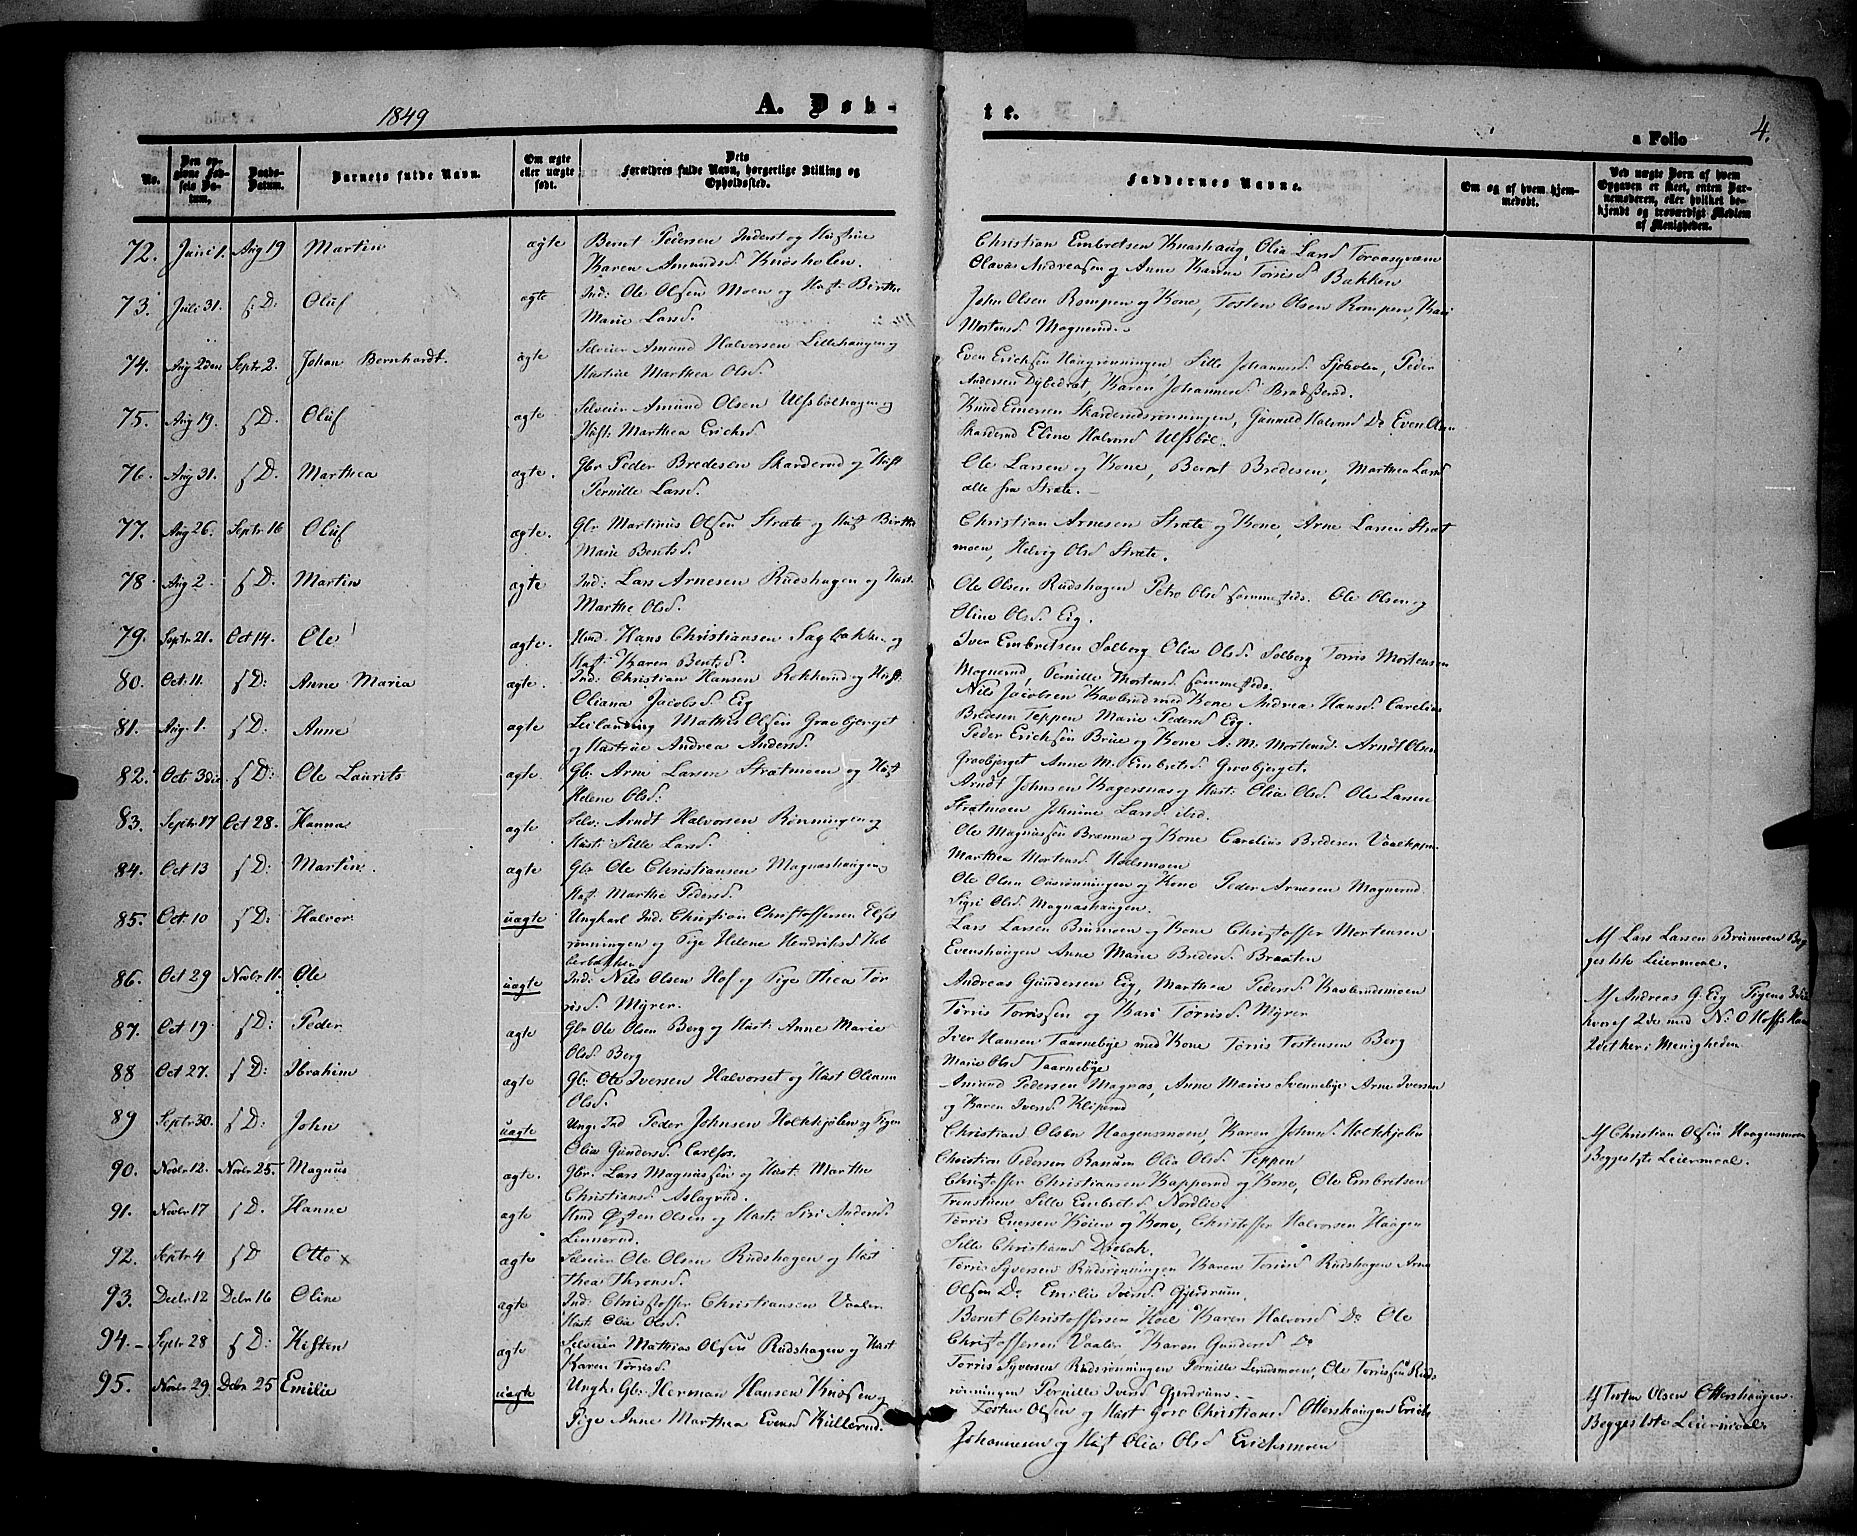 1849
A. Døb-
te.
a Folio
4.
No.
Den opgivne Fødsels Datum.
Daabs-Datum.
Barnets fulde Navn.
Om ægte eller uægte født.
Dets Forældres fulde Navn, borgerlige Stilling og Opholdssted.
Faddernes Navne.
Om og af hvem hjemmedøbt.
Ved uægte Børn af hvem Opgaven er skeet, enten Barnemoderen, eller hvilket bekjendt og troværdigt Medlem af Menigheden.
72. Juni 1. Aug 19 Martin ægte Bernt Pedersen Inderst og Hustrue
Karen Amundsd. Knosholen.
Christian Embretsen Knashaug, Olia Larsd
Olavus Andreasen og Anne Karine Torrisd. Bakken
73. Juli 31. s. D: Oluf ægte Ind: Ole Olsen Moen og Hust: Birthe
Marie Larsd.
John Olsen Rompen og Kone, Tosten Olsen Rompen, Kari
Mortensd. Magnerud.
74. Aug 2den Septr 2. Johan Bernhardt. ægte Selveier Amund Halvorsen Lillehaugen og
Hustrue Marthea Olsd.
Even Erichsen Haagrønningen, Sille Johannesd. Sjøbolen, Peder
Andersen Dybedræt, Karen Johannesd Bradserud.
75. Aug 19. s D. Oluf ægte Selveier Amund Olsen Ulfsbølhagen og
Hust: Marthea Erichsd
Knud Einersen Skarderudsrønningen, Gunnild Halvorsd Do Even Olsen
Skarderud Eline Halvorsd Ulfsbøl.
76. Aug 31. s D. Marthea ægte. Gbr Peder Bredesen Skarderud og Hust
Pernille Larsd.
Ole Larsen og Kone, Bernt Bredesen, Marthea Larsd
alle fra Stræte.
77. Aug 26. Septr 16 Oluf ægte. Gbr Martinus Olsen Stræte og Hust Birthe
Marie Bentsd.
Christian Arnesen Stræte og Kone, Arne Larsen Stræt
moen, Helvig Olsd Stræte.
78 Aug 2. s D. Martin ægte Ind: Lars Arnesen Rudshagen og Hust.
Marthe Olsd.
Ole Olsen Rudshagen Petro Olsd sammesteds. Ole Olsen og
Oline Olsd. Eig.
79. Septr 21. Oct 14. Ole ægte. Hmd. Hans Christiansen Sagbakken og
Hust: Karen Bentsd.
Iver Embretsen Solberg Olia Olsd. Solberg Torris Mortensen
Magnerud, Pernille Mortensd. sammesteds.
80. Oct. 11. s D: Anne Maria ægte. Ind: Christian Hansen Røkkerud og Hust.
Oliana Jacobsd. Eig
Nils Jacobsen Kavbrud med Kone Andrea Hansd. Carelius
Bredesen Teppen Marie Pedersd Eig.
81. Aug. 1. s D: Anne ægte Leilending Mathis Olsen Graabjerget
og Hustrue Andrea Andersd.
Peder Erichsen Brue og Kone A. M. Mortensd. Arndt Olsen
Graabjerget Anne M. Embretsd. Graabjerget.
82. Oct 3die s D: Ole Laurits ægte Gbr. Arne Larsen Strætmoen og Hust
Helene Olsd:
Arndt Johnsen Kagersnas og Hust: Olia Olsd. Ole Larsen
Strætmoen Johnine Larsd. ibid.
83. Septr 17 Oct 28. Hanna ægte Selv: Arndt Halvorsen Rønningen og
Hust: Sille Larsd.
Ole Magnussen Brænna og Kone Carelius Bredesen Vaalteppen
Marthea Mortensd. Hoelsmoen
84. Oct 13 s D: Martin. ægte Gbr Ole Christiansen Magnashaugen og
Hust. Marthe Pedersd.
Ole Olsen Oasrønningen og Kone Peder Arnesen Magnerud
Sigri Olsd. Magnashaugen.
85. Oct. 10 s D: Halvor uægte Ungkarl Ind: Christian Christoffersen Elset
rønningen og Pige Helene Hendriksd. Kob
berbakken
Lars Larsen Brumoen og Kone Christoffer Mortensen
Evenshaugen Anne Marie Bredesd. Braaten
Af Lars Larsen Brumoen Beg
ges 1ste Leiermaal.
86. Oct 29 Novbr 11. Ole uægte Ind: Nils Olsen Hof og Pige Thea Tor
risd. Myrer.
Andreas Gundersen Eig, Marthea Pedersd. Kavbrudsmoen
Torris Torrissen og Kari Torrisd. Myrer
Af Andreas G. Eig Pigens 3die
hvoraf 2de med N: O Hoffs Hans
2det her i Menigheden
87. Oct 19 s D: Peder ægte Gbr Ole Olsen Berg og Hust: Anne Marie
Olsd. Berg
Iver Hansen Taarnebye med Kone Torris Tostensen Berg
Marie Olsd Taarnebye
88 Oct 27. s D: Ibrahim ægte Gbr. Ole Iversen Halvorset og Hust Oleanna
Olsd.
Amund Pedersen Magnas, Anne Marie Svennebye Arne Iversen
og Karen Iversd. Kliperud
89 Septr 30. s D: John uægte Ung: Ind Peder Johnsen Holtkjølen og Pigen
Olia Gundersd. Carlfos.
Christian Olsen Haagensmoen, Karen Johnsd. Holtkjølen
Christian Pedersen Ranum Olia Olsd. Teppen
Af Christian Olsen Haagensmoen
Begges 1ste Leiermaal.
90. Novbr 12. Novbr 25. Magnus ægte. Gbr: Lars Magnussen og Hust: Marthe
Christiansd. Aslagrud.
Christoffer Christiansen Kapperud og Kone, Ole Embretsen
Sille Embretsd. Nordlie.
91. Novbr 17 s D. Hanne ægte Hmd Østen Olsen og Hust: Siri Andersd.
Linnerud.
Torris Enersen Køien og Kone, Christoffer Halvorsen Haagen
Sille Christiansd Drøbak.
92. Septr 4 s D Otto x ægte Selveier Ole Olsen Rudshagen og Hust
Thea Thronsd.
Torris Syversen Rudsrønningen Karen Torrisd Rudshagen Arne
Olsen Do. Emilie Iversd. Gjerdrum.
93. Decbr 12 Debr 16 Oline ægte Ind: Christoffer Christiansen Vaaler
Hust. Olia Olsd.
Bernt Christoffersen Hoel Karen Halvorsd Do Ole
Christoffersen Vaaler, Karen Gundersd Do
94. Septr 28 s D: Kesten ægte Selveier Mathias Olsen Rudshagen og Hust
Karen Torrisd.
Torris Syversen Rudsrønningen Pernille Lundsmoen, Ole Torrissen Ruds
rønningen Pernille Iversd Gjerdrum.
95. Novbr 29. Debr 25 Emilie uægte Ungk: Gbr: Herman Hansen Knosen og
Pige Anne Marthea Evensd Kullerud.
Tosten Olsen og Hust Gose Christiansd Ottershaugen Erich
Johannesen og Hust Olia Olsd Erichsmoen
Af Tosten Olsen Ottershaugen.
Begges 1ste Leiermaal.